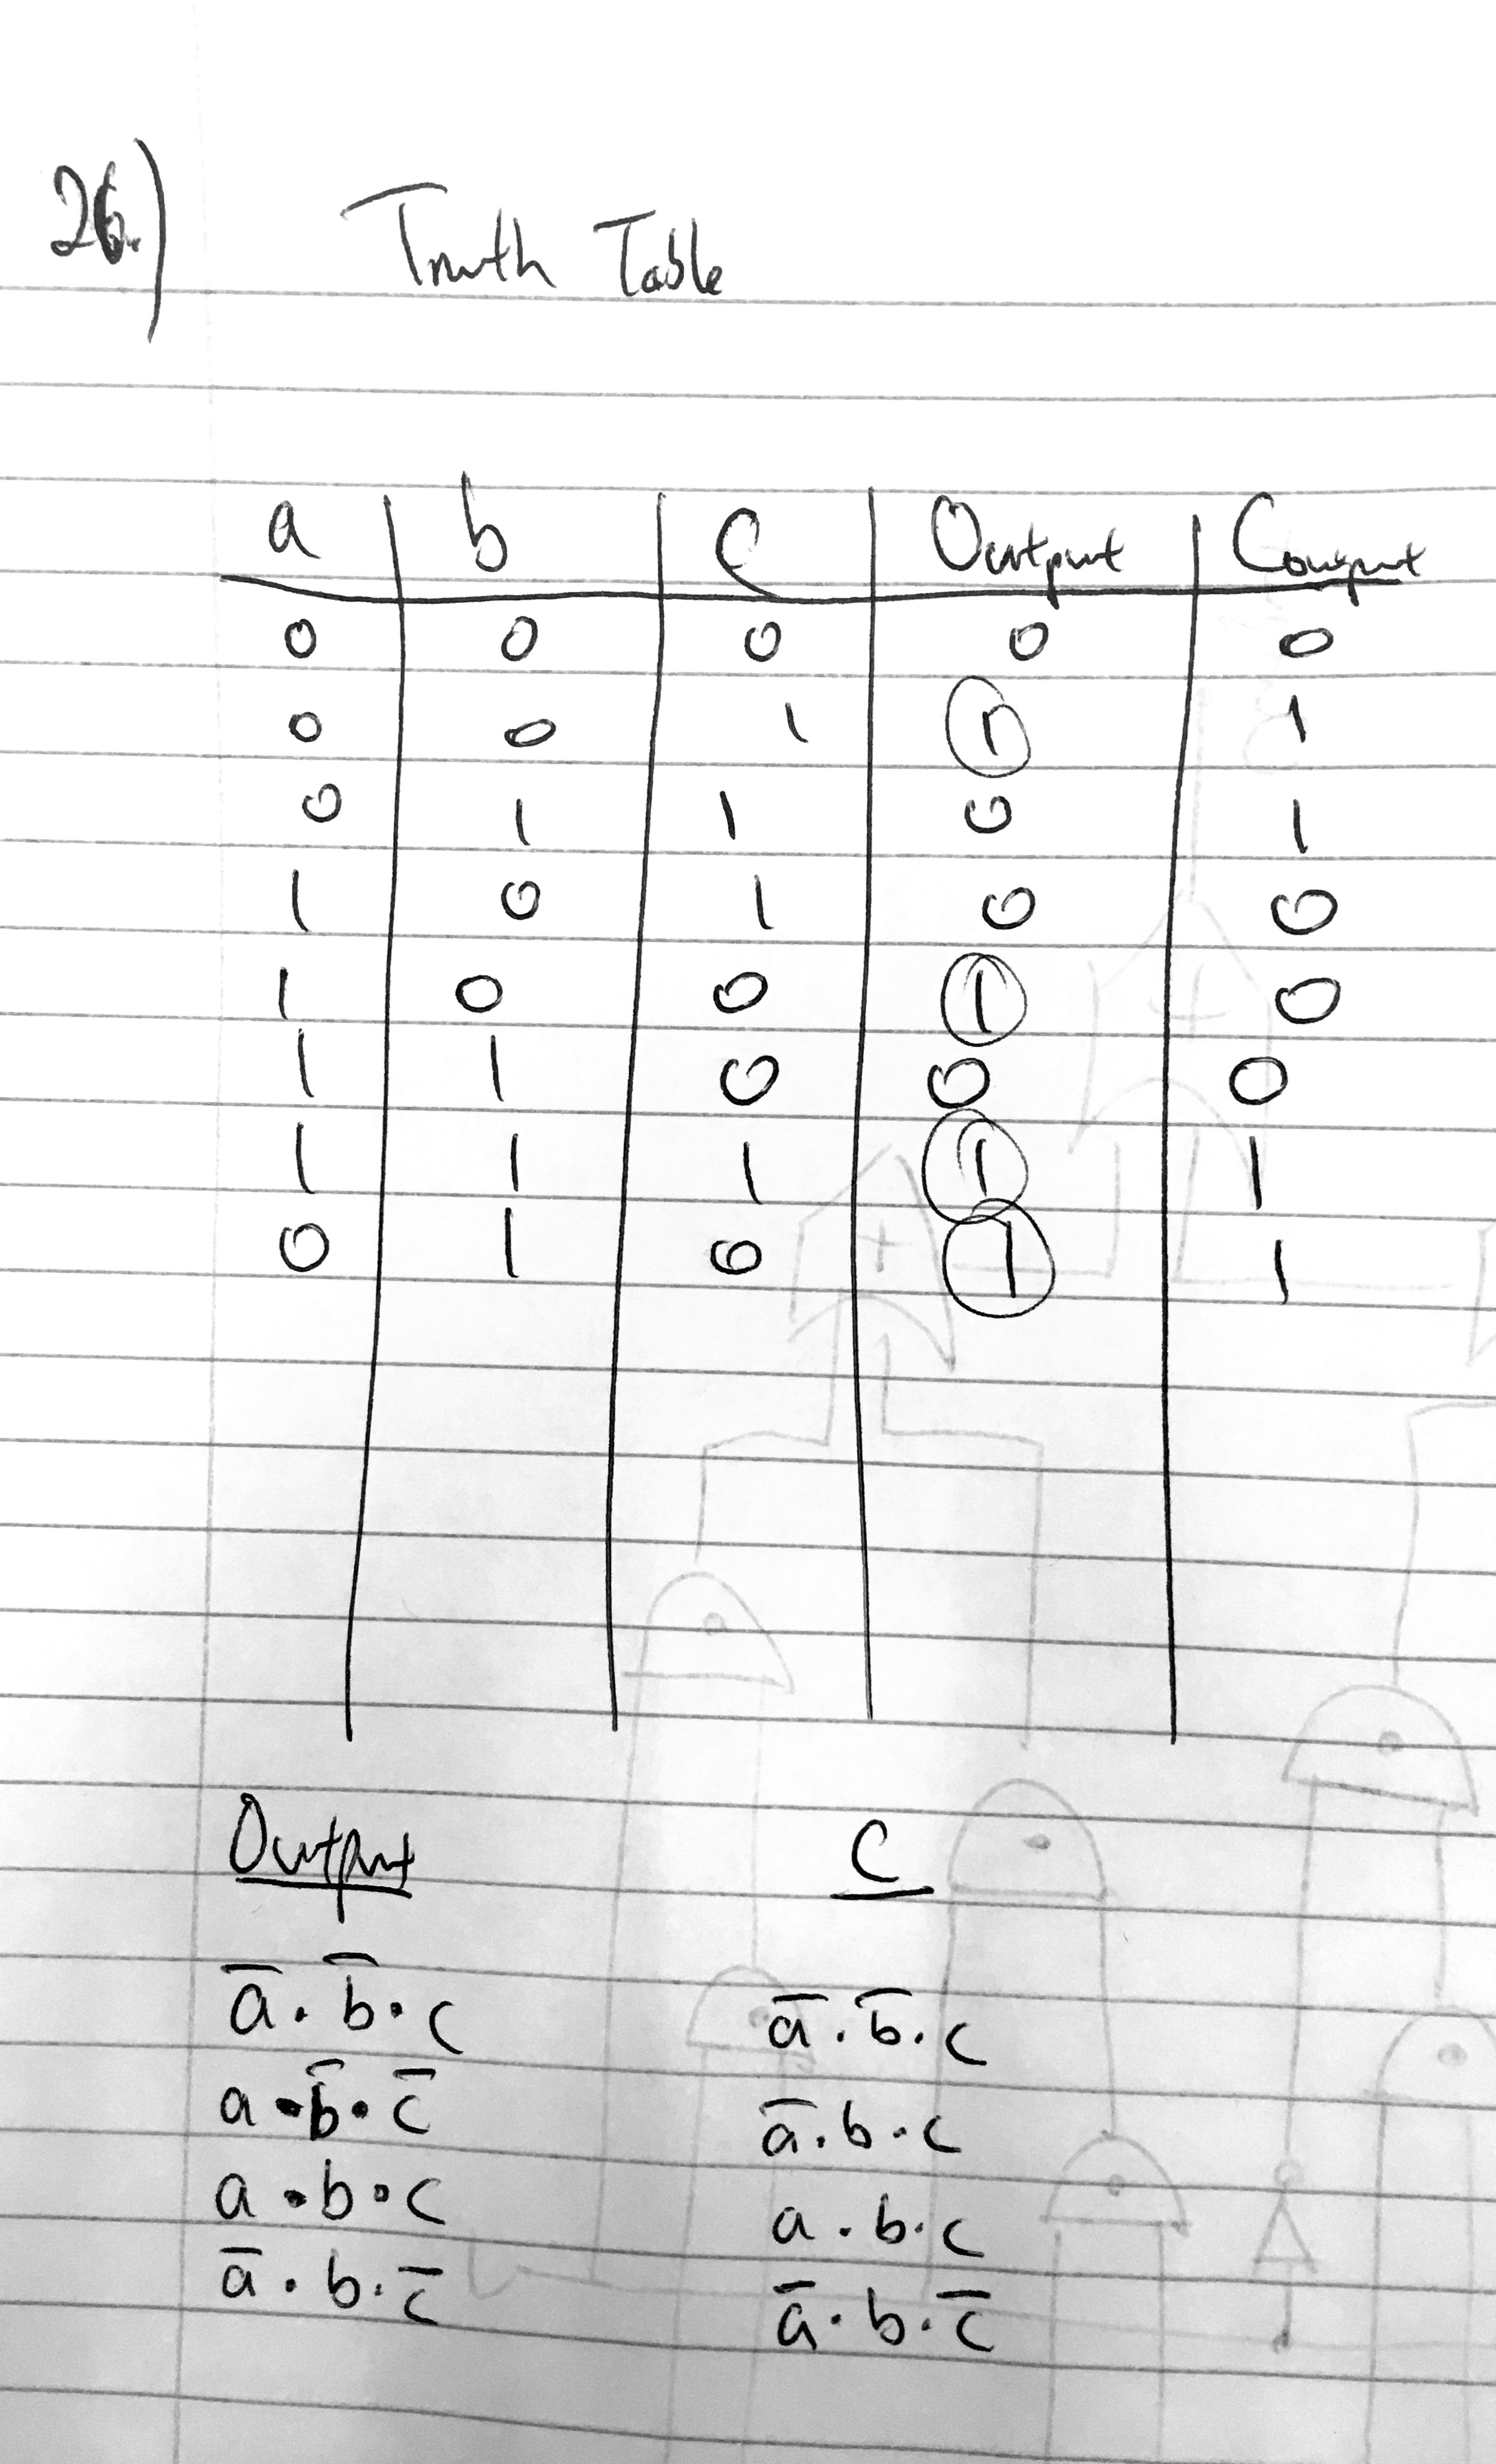 26.)
Truth Table
a b C Output Coutput
0 0 0 0 0
0 0 1 1 1
0 1 1 0 1
1 0 1 0 0
1 0 0 1 0
1 1 0 0 0
1 1 1 1 1
0 1 0 1 1
Output C
a̅ · b̅ · c a̅ · b̅ · c
a · b̅ · c̅ a̅ · b · c
a · b · c a · b · c
a̅ · b · c̅ a̅ · b · c̅